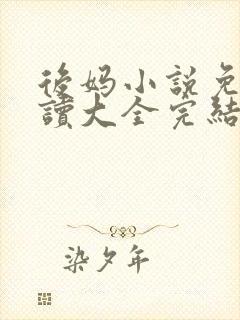 後媽小說免
讀大全完結
染夕年